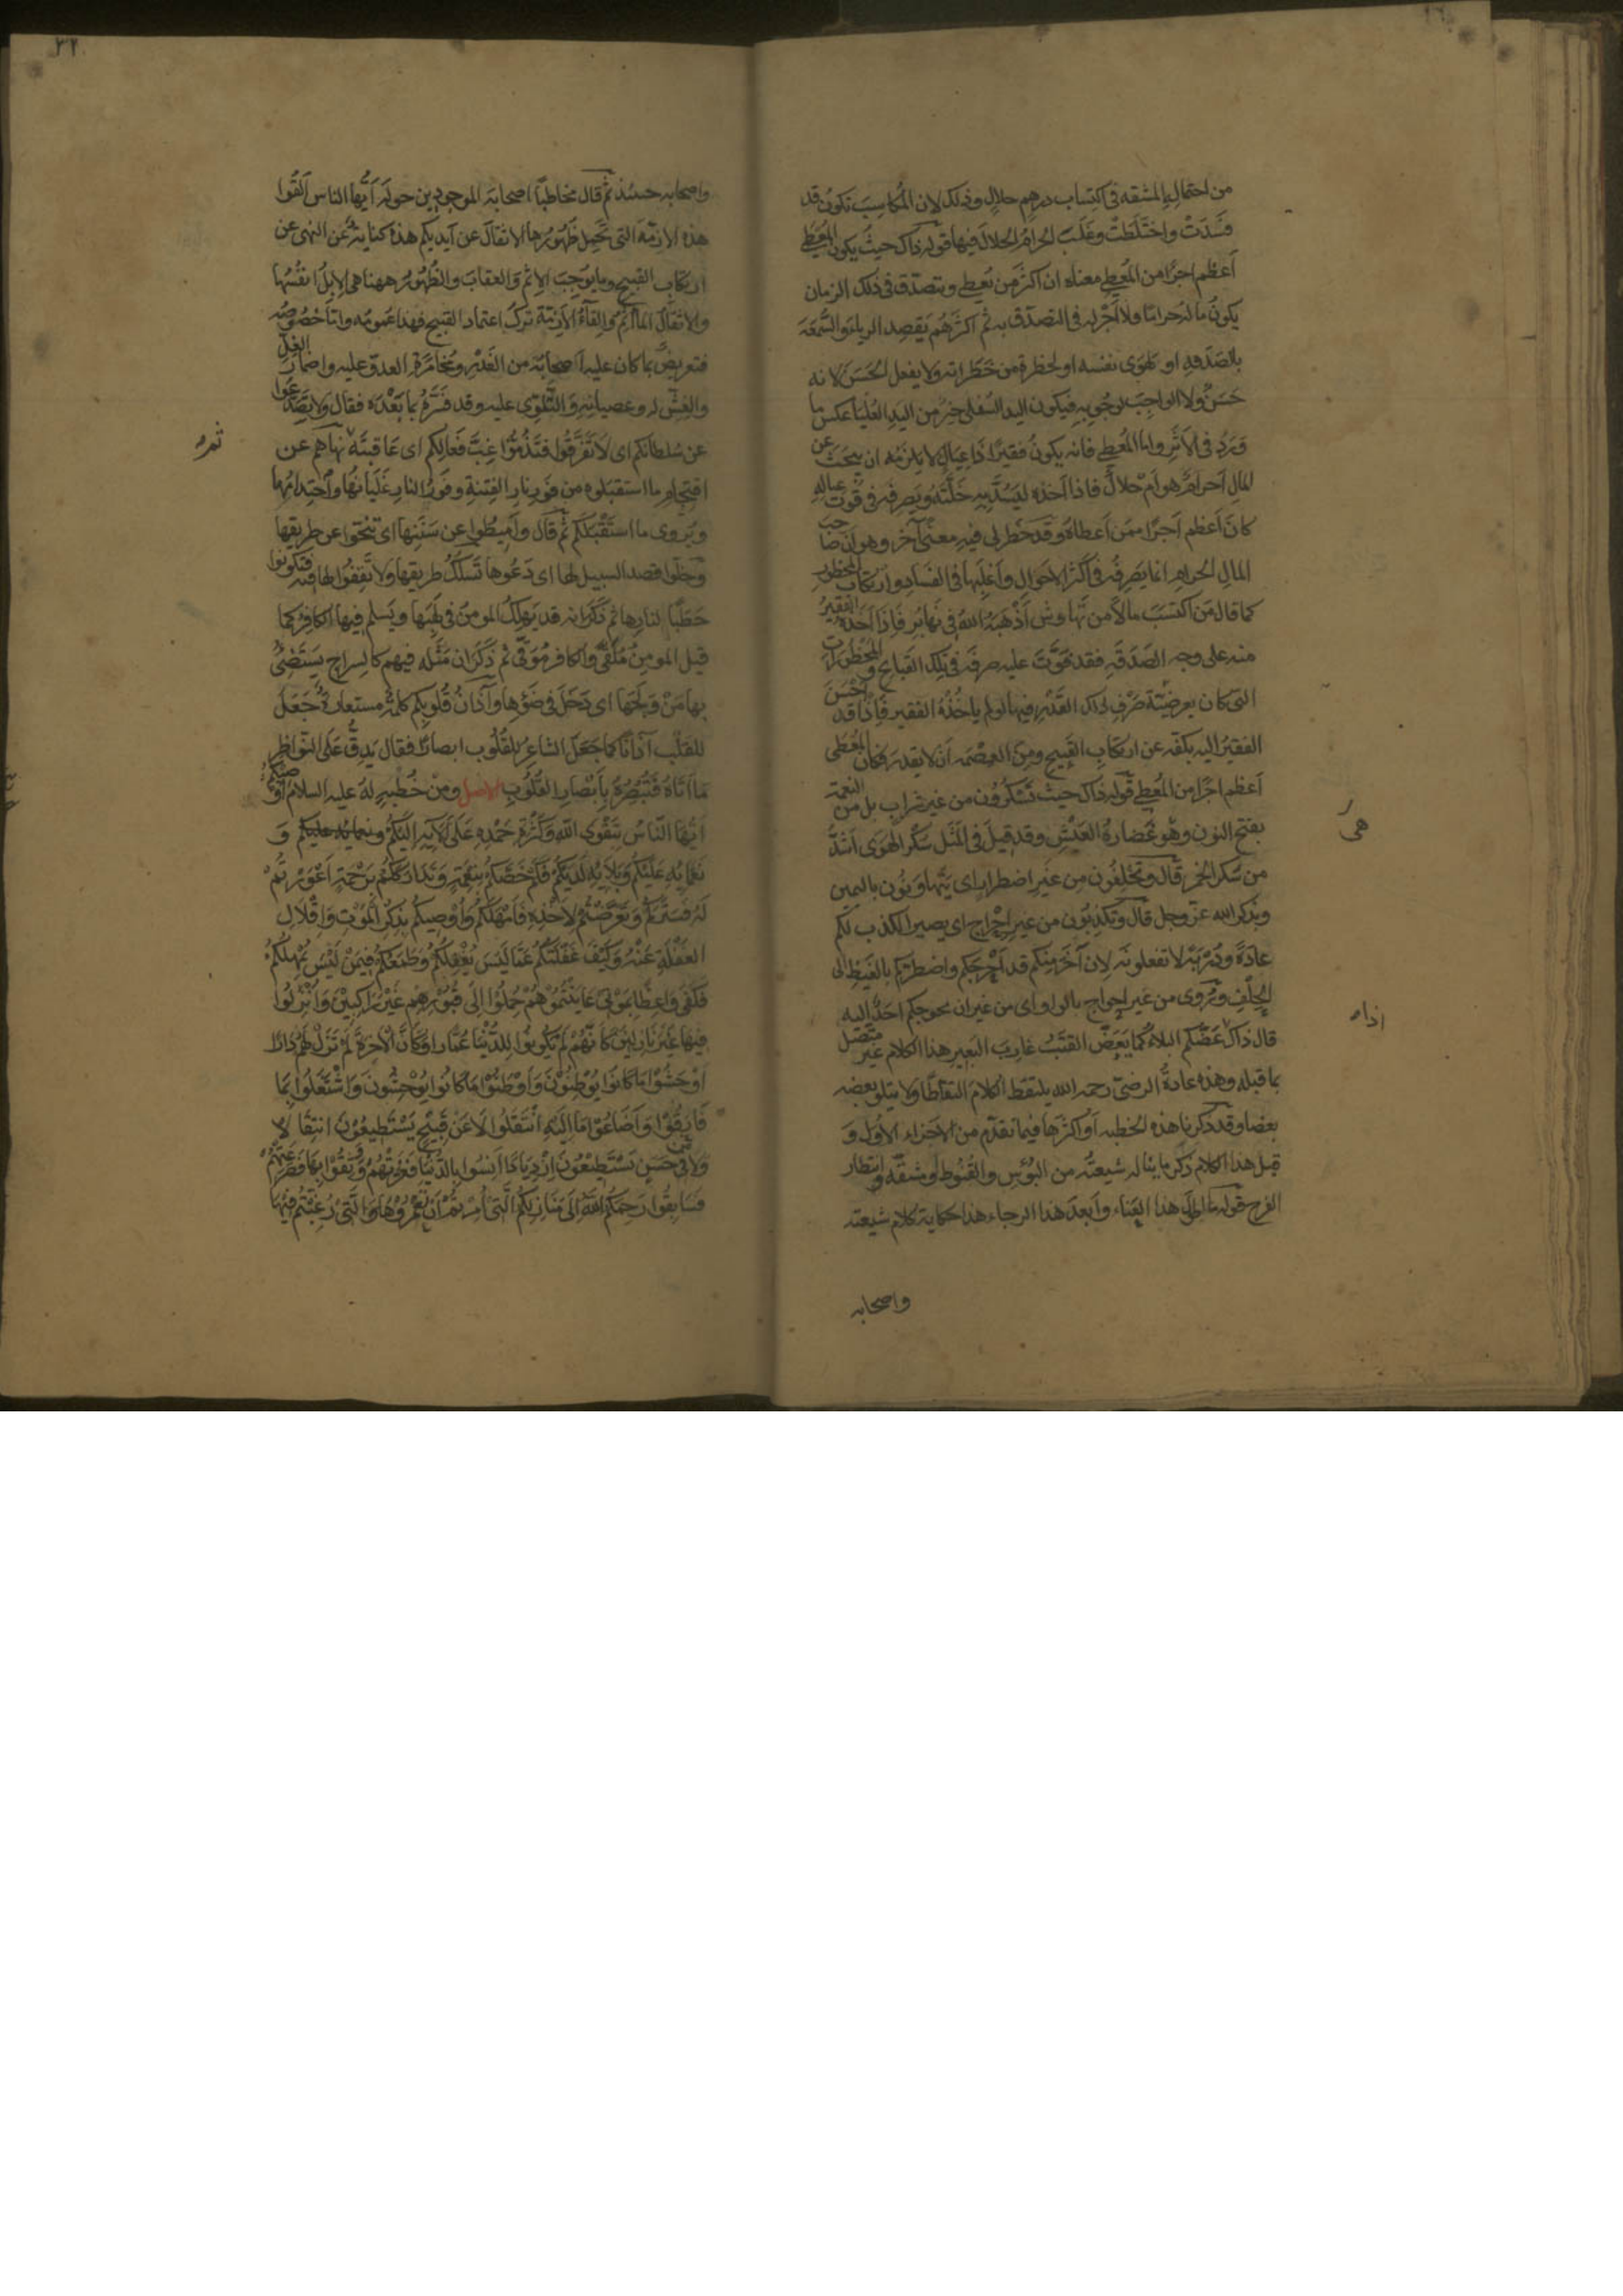 من احتمالِه المشقة فى اكتساب درهم حلالٍ وذلك لان المكاسِبَ تكونُ قد
فسَدَتْ واختلَطَتْ وغلَبَ الحرامُ الحلالَ فيها قوله ذاك حيثُ يكون المُعطَى
اَعظم اجرًا من المُعطِى معناه ان اكثر من يُعطِى ويتصدّق فى ذلك الزمان
يكونُ ماله حرامًا ولا اَجْرَ له فى التصدّق به ثم اكثرهُم يقصد الرياءَ والسُّمعَةَ
بالصَدَقةِ او لهوَى نفسه او لخطرة من خَطَراته ولا يفعل الحَسَنَ لانه
حَسَنٌ ولا الواجِبَ لوجُوبِه فيكون اليد السُفلى خيرٌ من اليَدِ العُليَا عكس ما
وَرَدَ فى الاَثَرِ واما المُعطَى فانه يكونُ فقيرًا ذا عِيالٍ لا يلزمُه ان يبحَثَ عن
المال اَحرامٌ هو اَم حلالٌ فاذا اَخذه ليَسُدَّ به خَلَّتَهُ ويَصرِفه فى قُوت عِياله
كانَ اَعظم اَجرًا ممَن اَعطاهُ وقد خَطر لى فيهِ معنًى آخر وهو اَن صاحبَ
المالِ الحرامِ انما يَصرِفُه فى اكثر الاحوالِ واَغلَبِها فى الفَسادِ وارتكاب المحظور
كما قال مَن اكتسَبَ مالاً من نَهاوِشَ اَذْهَبَهُ اللهُ فى نَهابِرَ فَاِذا اَخَذه الفقيرُ
منه على وجهِ الصَدَقةِ فقد فوَّتَ عليه صرفَه فى تِلك القَبائح والمحظورات
التى كان بعرضيّته صَرْفِ ذلك القَدْرِ فيها لو لم ياخُذْهُ الفقير فاِذًا قد اَحْسَنَ
الفقيرُ اليه بكفّه عن ارتكابِ القَبِيح ومِنَ العِصْمَه اَن لا يقدر فكانَ المُعطَى
اَعظم اجرًا من المُعطِى قوله ذاك حيث تَسْكَرُون من غيرِ شرابٍ بل من النَعمة
بفتح النون وهو غَضارةُ العَيشِ وقد قيلَ فى المَثَل سُكر الهَوى اَشدُّ
من سُكر الخمر قال وتحْلِفُون من غيرِ اضطرارٍ اى يَتهاوَنُون باليمين
وبذكر الله عزّ وجل قال وتكذبُون من غيرِ اِحْراجٍ اى يصيرُ الكذب لكم
عادةً ودُرْبَةً لا تفعلونه لان آخَرَ منكم قد اَحْرَجَكم واضطرّكم بالغَيظِ الى
الحِلْفِ ويُروى من غيرِ اِحواجٍ بالواو اى من غيرِ ان يحوِجكم احَدٌ اليه
قال ذاكَ اذا عَضّكم البلاءُ كما يَعَضُّ القَتَبُ غارِبَ البَعيرِ هذا الكلام غير متصل
بما قبله وهذه عادةُ الرضىّ رحمه الله يلتقط الكلامَ التقاطًا ولا يتلو بعضه
بعضا وقد ذكرنا هذه الخطبه اَو اكثرها فيما تقدّم من الاجزاء الاُول وَ
قبل هذا الكلام ذكر ما يناله شيعتُه من البُؤْسِ والقُنُوط ومشقّه وانتظار
الفرج قوله ما اطولَ هذا العَناء واَبعدَ هذا الرجاء هذا حكاية كلام شيعته
هى
اذا
واصحابه
٣٢
واصحابه حينئذ ثم قال مخاطبًا اصحابَه الموجودين حوله اَيّها الناس اَلقُوا
هذه الازمّة التى تحمِل ظهورُها الاثقال عن اَيديكم هذه كنايةٌ عَن النهى عن
ارتكاب القبيح وما يوجب الاِثمَ والعقابَ والظُهُورُ ههنا هى الاِبِلُ اَنفُسُها
والاثقالُ المآثم واِلقآءُ الاَزِمّة تركُ اعتماد القبيح فهذا عمومُه واَمّا خُصُوصُه
فتعريضٌ بما كان عليه اَصحابُه من الغَدْرِ ومُخامَرَةِ العدوّ عليه واضمارِ الغِلّ
والغِشّ له وعصيانِه والتَّلَوِّى عليه وقد فسَّرهُ بما بَعْدَه فقال ولا تَصَدَّعُوا
عن سُلطانكم اى لا تَفَرَّقُوا فتَذُمُّوا غِبَّ فَعالِكم اى عَاقبتَه ثم نهاهم عن
اقتِحامِ ما استقبَلوه من فَورِ نارِ الفِتنةِ وفَورُ النارِ غَلَيانُها واَحتدامُها
ويُروى ما استَقْبَلكم ثم قال واَمِيطُوا عن سَنَنِها اى تنَحّوا عن طريقها
وخلّوا قصد السبيل لها اى دَعُوها تَسلكُ طريقها ولا تَقِفُوا لها فيه فتكونوا
حَطبًا لنارِها ثم ذَكَر انه قد يَهلِكُ المومنُ فى لَهَبِها ويَسلم فيها الكافِرُ كما
قيل المومِنُ مُلَقًّى والكافر مُوَقًّى ثم ذكَر ان مَثَله فيهم كالسِراجِ يَستضئُ
بها مَنْ وَلَجَها اى دَخلَ فى ضَوْءِها وآذانُ قُلوبِكم كلمةٌ مستعارةٌ جَعَلَ
للقلب آذانًا كما جَعَلَ الشاعِرُ للقُلُوب ابصارًا فقال يَدِقُّ عَلَى النَّوَاظِرِ
مَا اَتَاهُ فَتُبْصِرُهُ بِاَبْصَارِ القُلُوبِ الاصل ومن خُطبةٍ لهُ عليه السلام اُوصِيكُم
اَيُّهَا النَّاسُ بِتَقْوَى اللهِ وَكَثْرَةِ حَمْدِهِ عَلَى آلَائِهِ اِلَيْكُمْ ونعمائه عليكم وَ
نَعْمَائِهِ عَلَيْكُمْ وَبَلَائِهِ لَدَيْكُمْ فَكَمْ خَصَّكُمْ بِنِعْمَةٍ وَتَدَارَكَكُمْ بِرَحْمَةٍ اَعْوَرْتُمْ
لَهُ فَسَتَرَكُمْ وَتَعَرَّضْتُمْ لِاَخْذِهِ فَاَمْهَلَكُمْ وَاُوصِيكُمْ بِذِكْرِ الْمَوْتِ وَاِقْلَالِ
الْغَفْلَةِ عَنْهُ وَكَيْفَ غَفْلَتُكُمْ عَمَّا لَيْسَ يُغْفِلُكُمْ وَطَمَعُكُمْ فِيمَنْ لَيْسَ يُمْهِلُكُمْ
فَكَفَى وَاعِظًا بِمَوْتَى عَايَنْتُمُوهُمْ حُمِلُوا اِلَى قُبُورِهِمْ غَيْرَ رَاكِبِيْنَ وَاُنْزِلُوا
فِيهَا غَيْرَ نَازِلِيْنَ كَاَنَّهُمْ لَمْ يَكُونُوا لِلدُّنْيَا عُمَّارًا وَكَاَنَّ الْاٰخِرَةَ لَمْ تَزَلْ لَهُمْ دَارًا
اَوْحَشُوْا مَا كَانُوا يُوْطِنُوْنَ وَاَوْطَنُوْا مَا كَانُوا يُوْحِشُونَ وَاشْتَغَلُوا بِمَا
فَارَقُوْا وَاَضَاعُوْا مَا اِلَيْهِ انْتَقَلُوا لَا عَنْ قَبِيْحٍ يَسْتَطِيعُوْنَ انتِقَالًا
وَلَا فِى حَسَنٍ يَسْتَطِيْعُوْنَ ازْدِيَادًا اَنِسُوا بِالدُّنْيَا فَغَرَّتْهُمْ وَوَثِقُوْا بِهَا فَصَرَعَتْهُمْ
فَسَابِقُوا رَحِمَكُمُ اللهُ اِلَى مَنَازِلِكُمُ الَّتِى اُمِرْتُمْ اَنْ تَعْمُرُوْهَا وَالَّتِى رُغِّبْتُمْ فِيْهَا